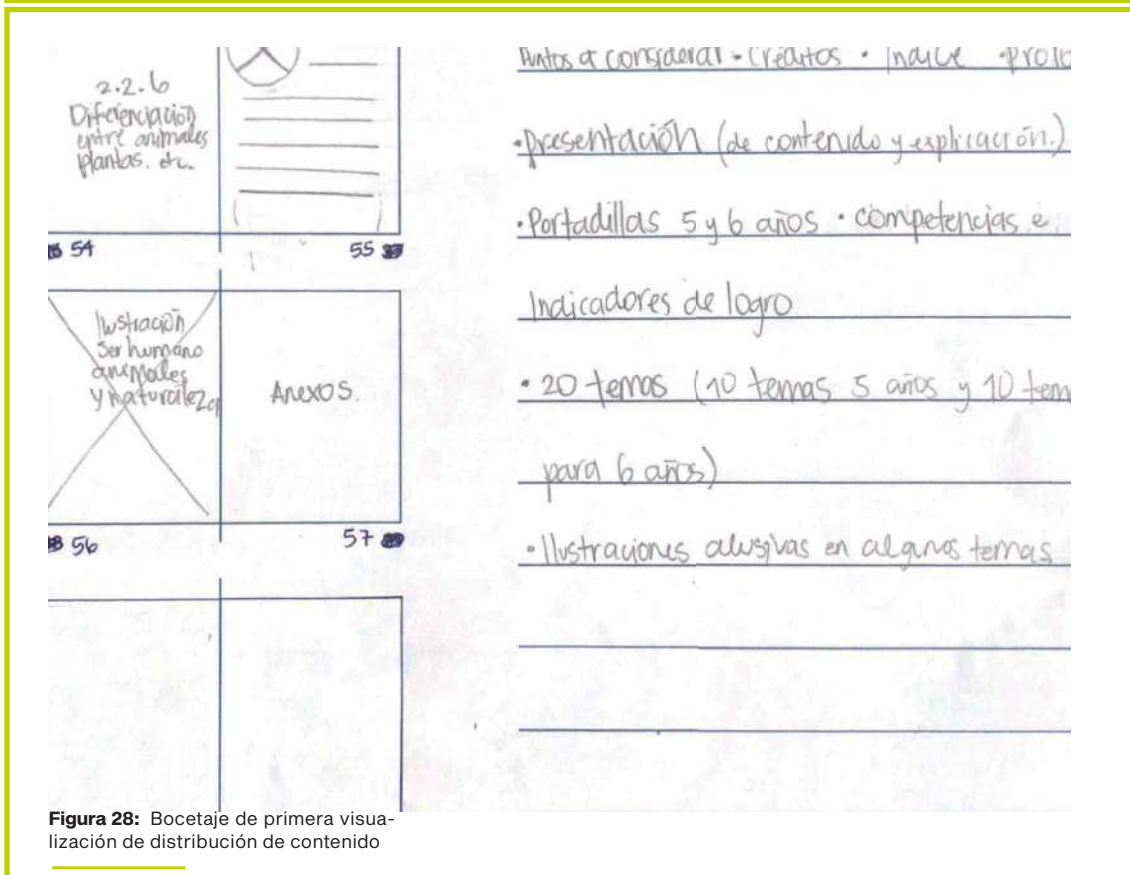 2.2.6
Diferenciación
entre animales
plantas. etc.
54
55
Ilustración
Ser humano
animales
y naturaleza
Anexos.
56
57
Puntos a considerar • Créditos • Indice • prolo
• presentación (de contenido y explicación.)
• Portadillas 5 y 6 años • competencias e
Indicadores de logro
• 20 temas (10 temas 5 años y 10 tem
para 6 años)
• Ilustraciones alusivas en algunos temas
Figura 28: Bocetaje de primera visua-
lización de distribución de contenido